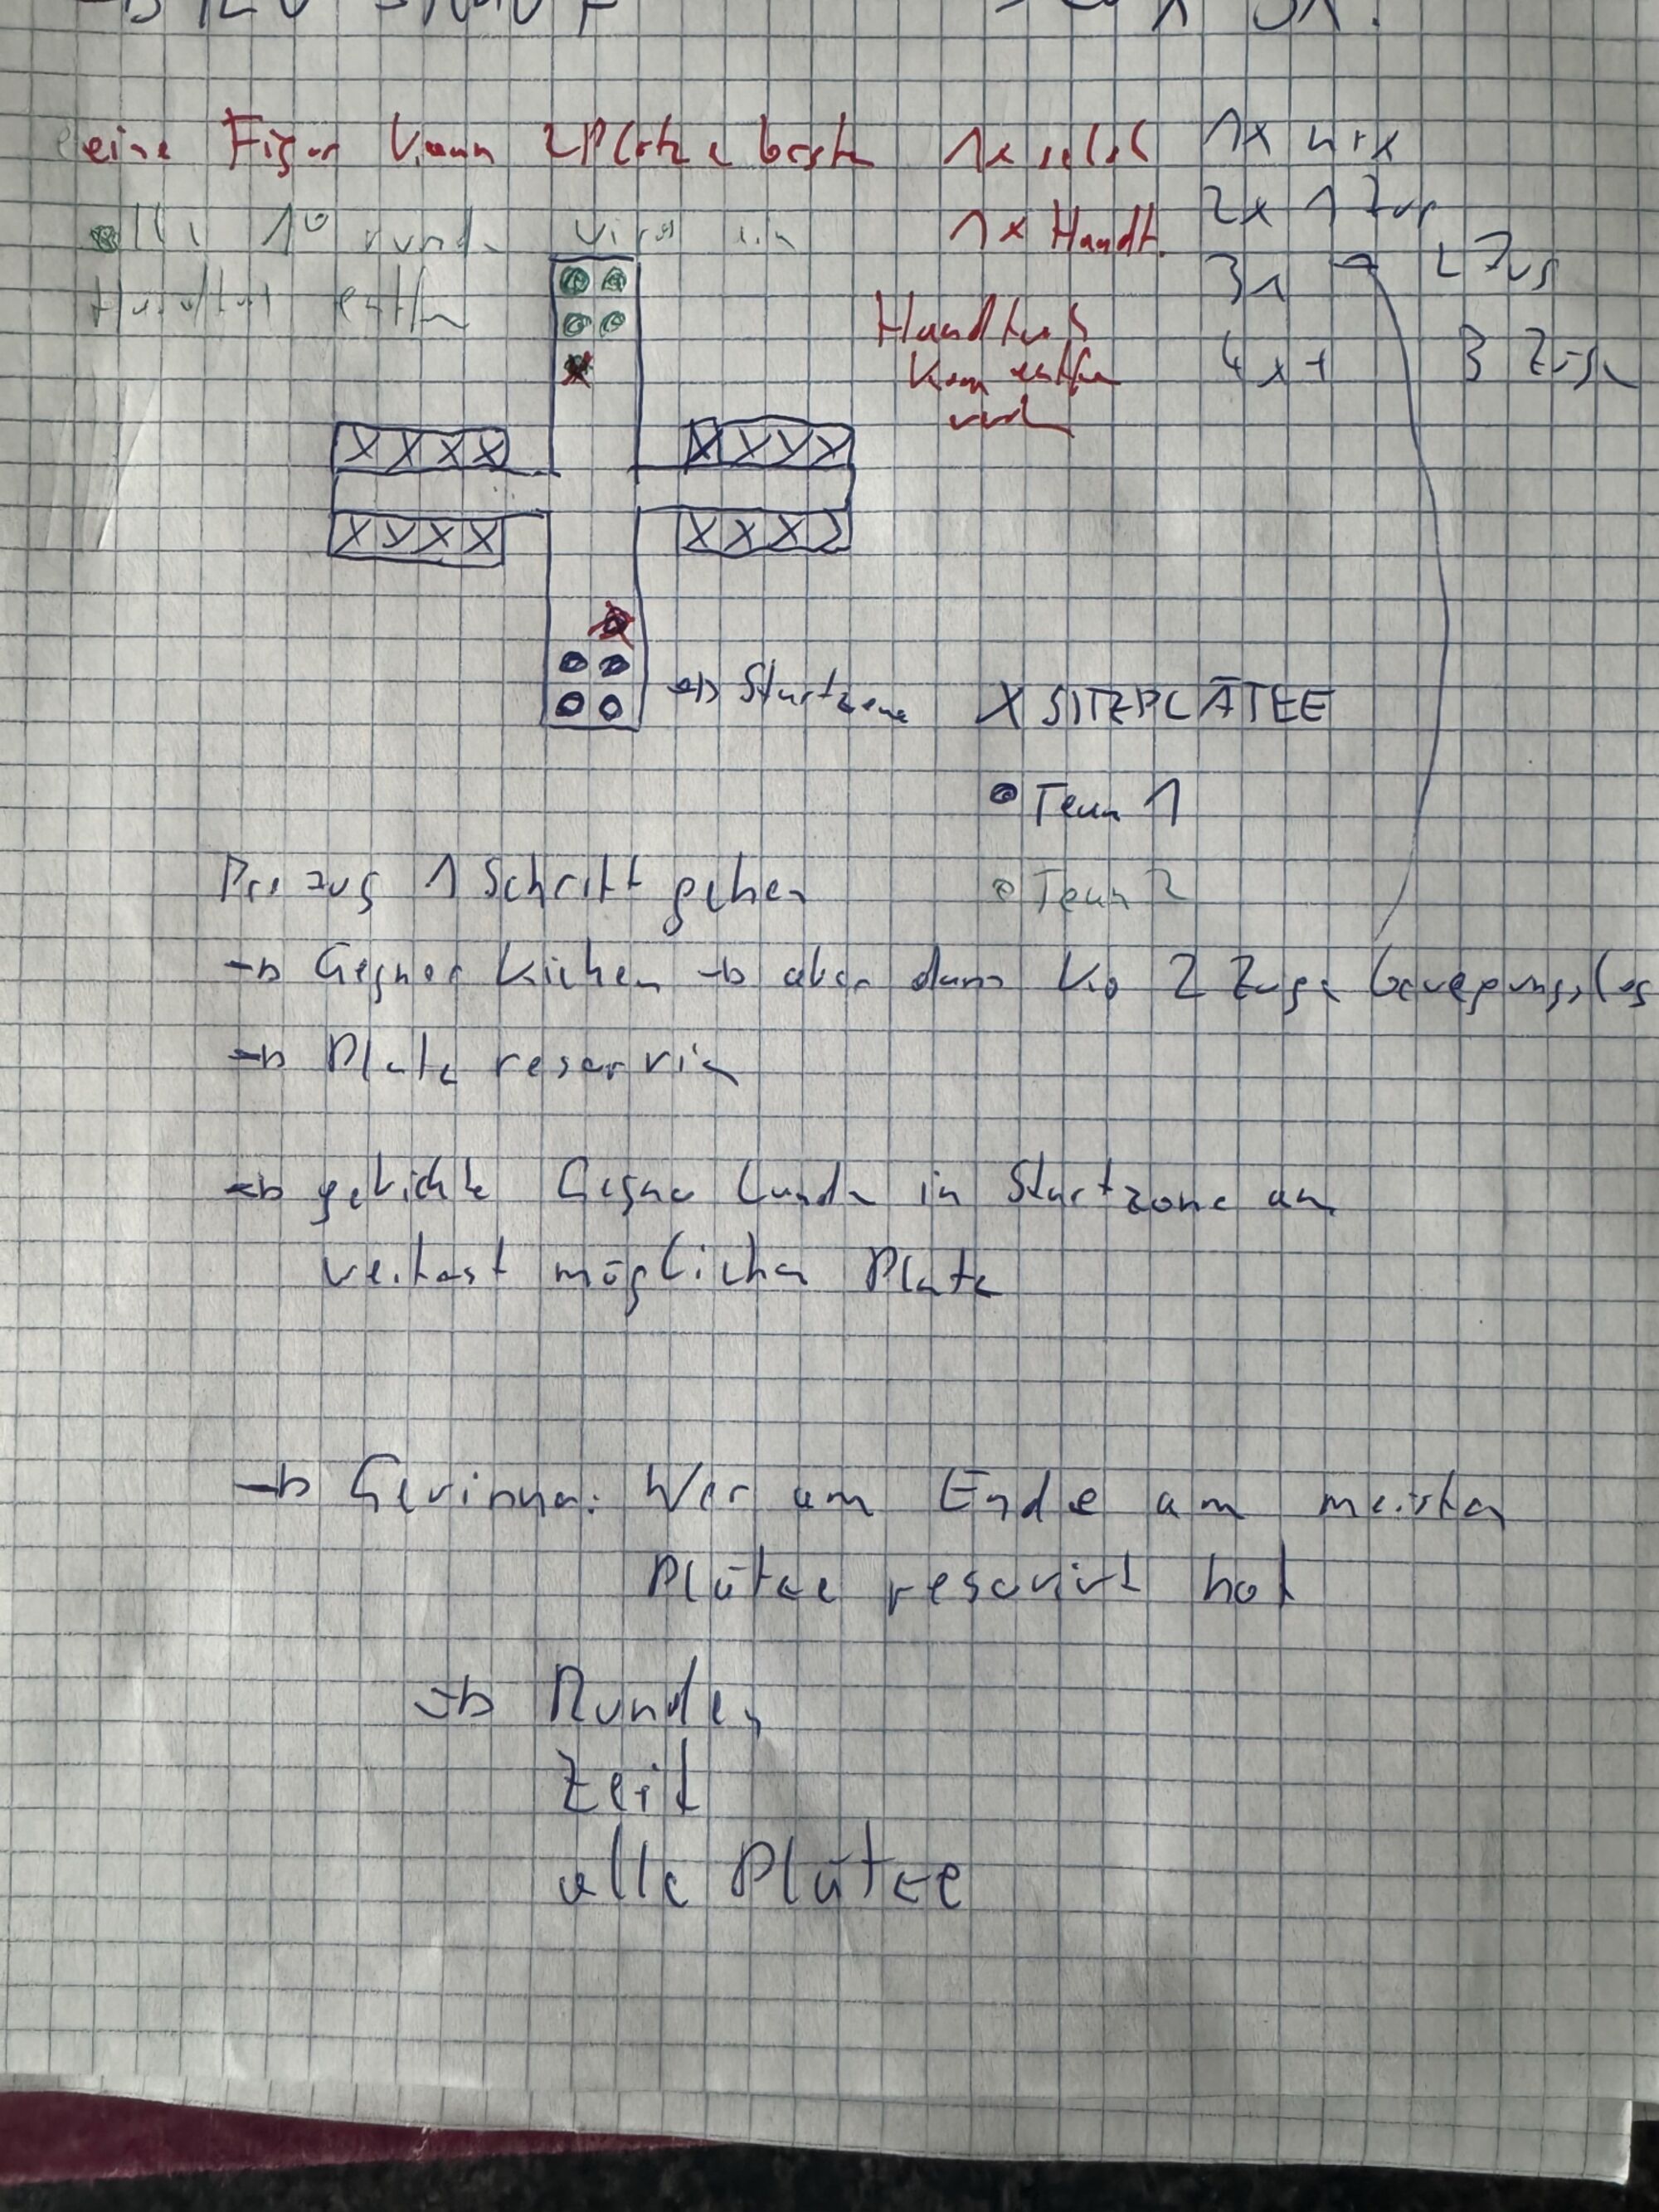 eine Figur kann 2 Plätze besetzen 1x selbst 1x nix
alle 10 runden wird ein 1x Handt. 2x 1 Zug
Handtuch entfernt
3x 2 Züge
Handtuch
kann entfernt 4x → 3 Züge
werden
XXXX XXXX
XXXX XXXX
→ Startzone
X SITZPLÄTZE
Team 1
Pro zug 1 Schritt gehen
Team 2
→ Gegner kicken → aber dann ko 2 Züge bewegungslos
→ Platz reservieren
→ gekickte Gegner landen in Startzone am
weitest möglichen Platz
→ Gewinner: Wer am Ende am meisten
Plätze reserviert hat
→ Runden
Zeit
alle Plätze